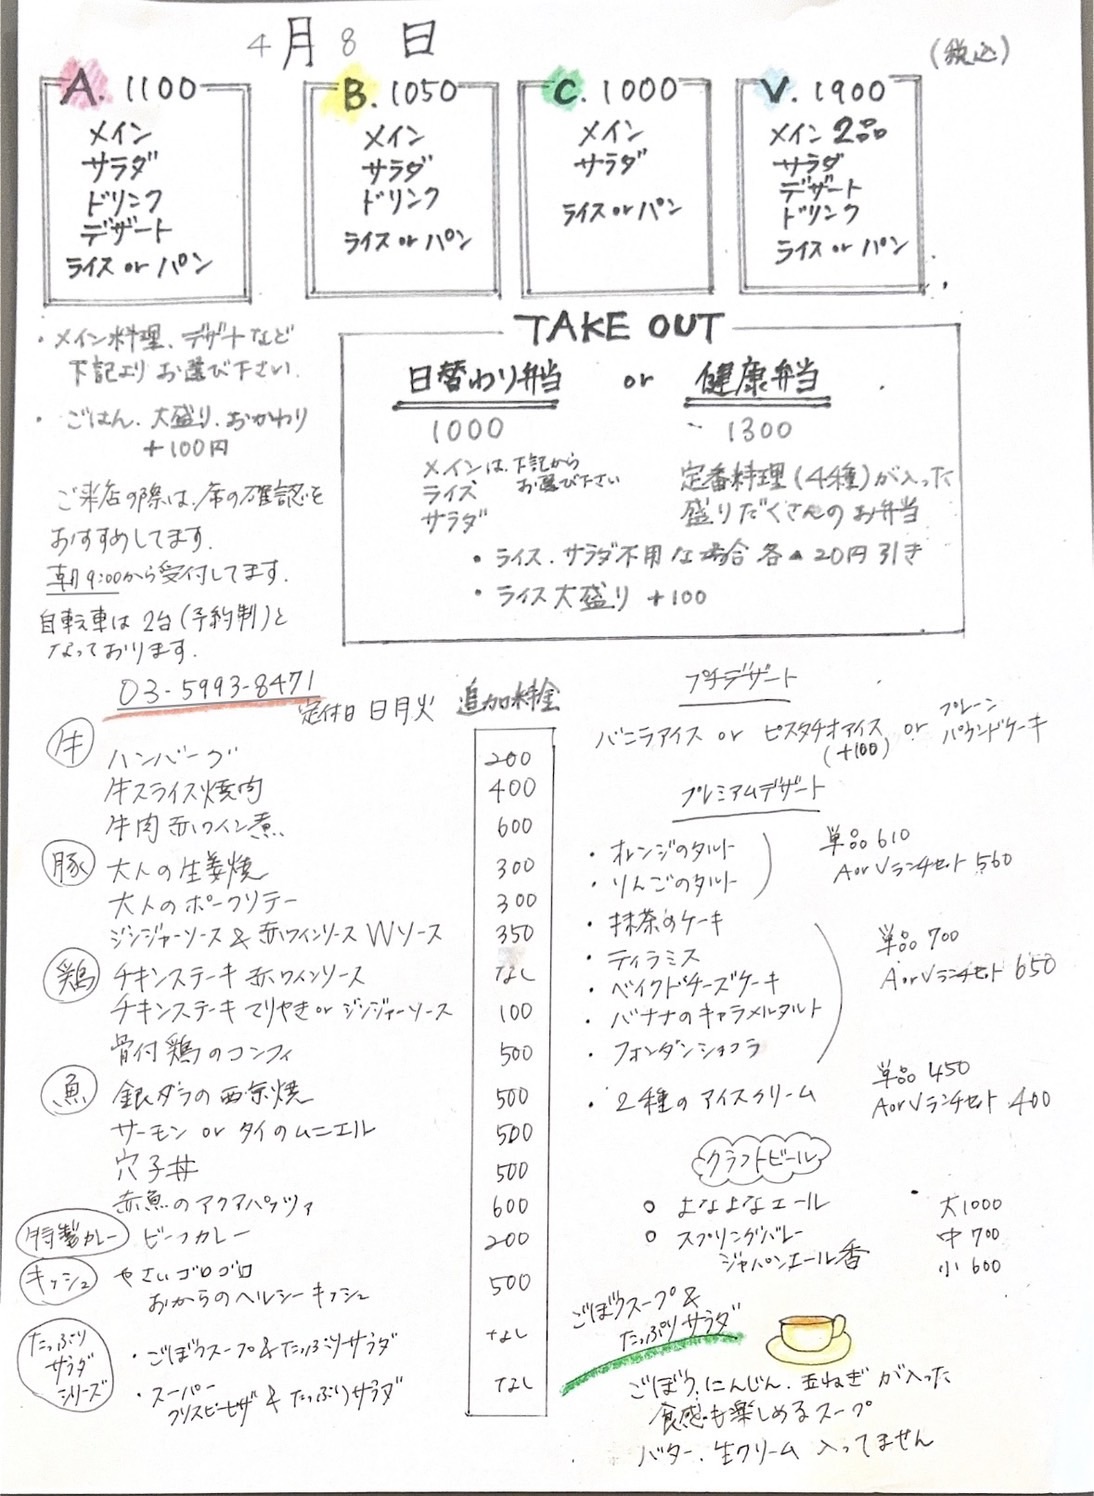 4月8日
(税込)
A. 1100
メイン
サラダ
ドリンク
デザート
ライス or パン
B. 1050
メイン
サラダ
ドリンク
ライス or パン
C. 1000
メイン
サラダ
ライス or パン
V. 1900
メイン 2品
サラダ
デザート
ドリンク
ライス or パン
・メイン料理、デザートなど
下記より お選び下さい.
・ごはん、大盛り、おかわり
+100円
ご来店の際は、席の確認を
おすすめしてます.
朝9:00から受付してます.
自転車は2台(予約制)と
なっております.
03-5993-8471
TAKE OUT
日替わり弁当 or 健康弁当
1000
メインは、下記から
お選び下さい
ライス
サラダ
1300
定番料理(4種)が入った
盛りだくさんのお弁当
・ライス、サラダ不用な場合 各▲20円引き
・ライス大盛り +100
定休日 日月火 追加料金
牛
ハンバーグ 200
牛スライス焼肉 400
牛肉赤ワイン煮 600
豚
大人の生姜焼 300
大人のポークソテー 300
ジンジャーソース & 赤ワインソース Wソース 350
鶏
チキンステーキ 赤ワインソース なし
チキンステーキ てりやき or ジンジャーソース 100
骨付鶏のコンフィ 500
魚
銀ダラの西京焼 500
サーモン or タイのムニエル 500
穴子丼 500
赤魚のアクアパッツァ 600
特製カレー ビーフカレー 200
キッシュ やさいゴロゴロ
おからのヘルシーキッシュ 500
たっぷり
サラダ
シリーズ
・ごぼうスープ & たっぷりサラダ なし
・スーパー
クリスピーピザ & たっぷりサラダ なし
プチデザート
バニラアイス or ピスタチオアイス
(+100)
or プレーン
パウンドケーキ
プレミアムデザート
・オレンジのタルト
・りんごのタルト
単品 610
A or V ランチセット 560
・抹茶のケーキ
・ティラミス
・ベイクドチーズケーキ
・バナナのキャラメルタルト
・フォンダンショコラ
単品 700
A or V ランチセット 650
・2種のアイスクリーム
単品 450
A or V ランチセット 400
クラフトビール
○ よなよなエール
○ スプリングバレー
ジャパンエール香
大1000
中 700
小 600
ごぼうスープ &
たっぷりサラダ
ごぼう、にんじん、玉ねぎ が入った
食感も楽しめるスープ
バター、生クリーム 入ってません